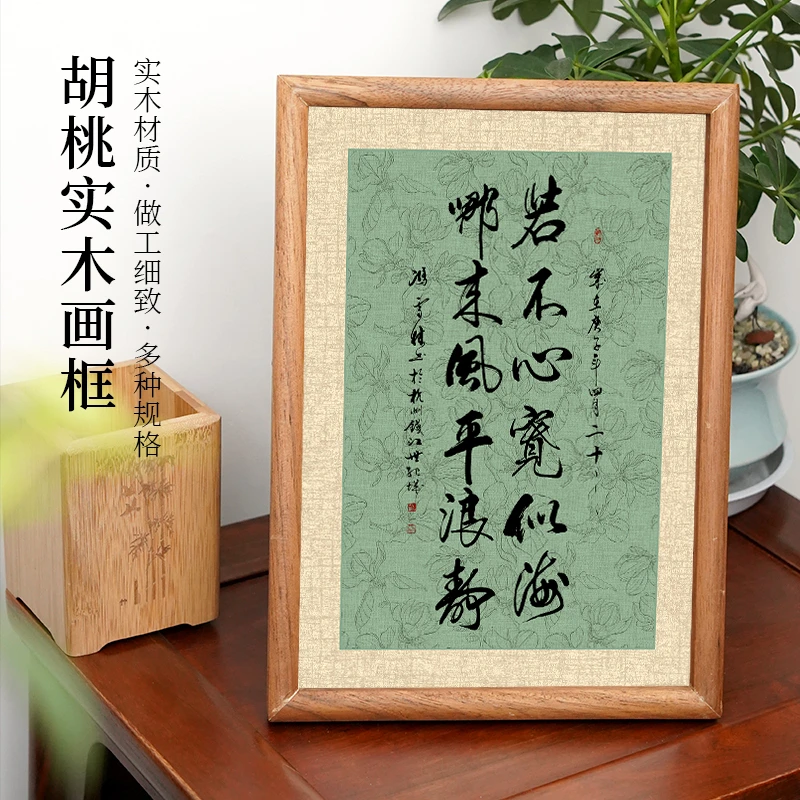 胡桃实木画框
实木材质·做工细致·多种规格
岁在庚子年四月二十
若不心宽似海
哪来风平浪静